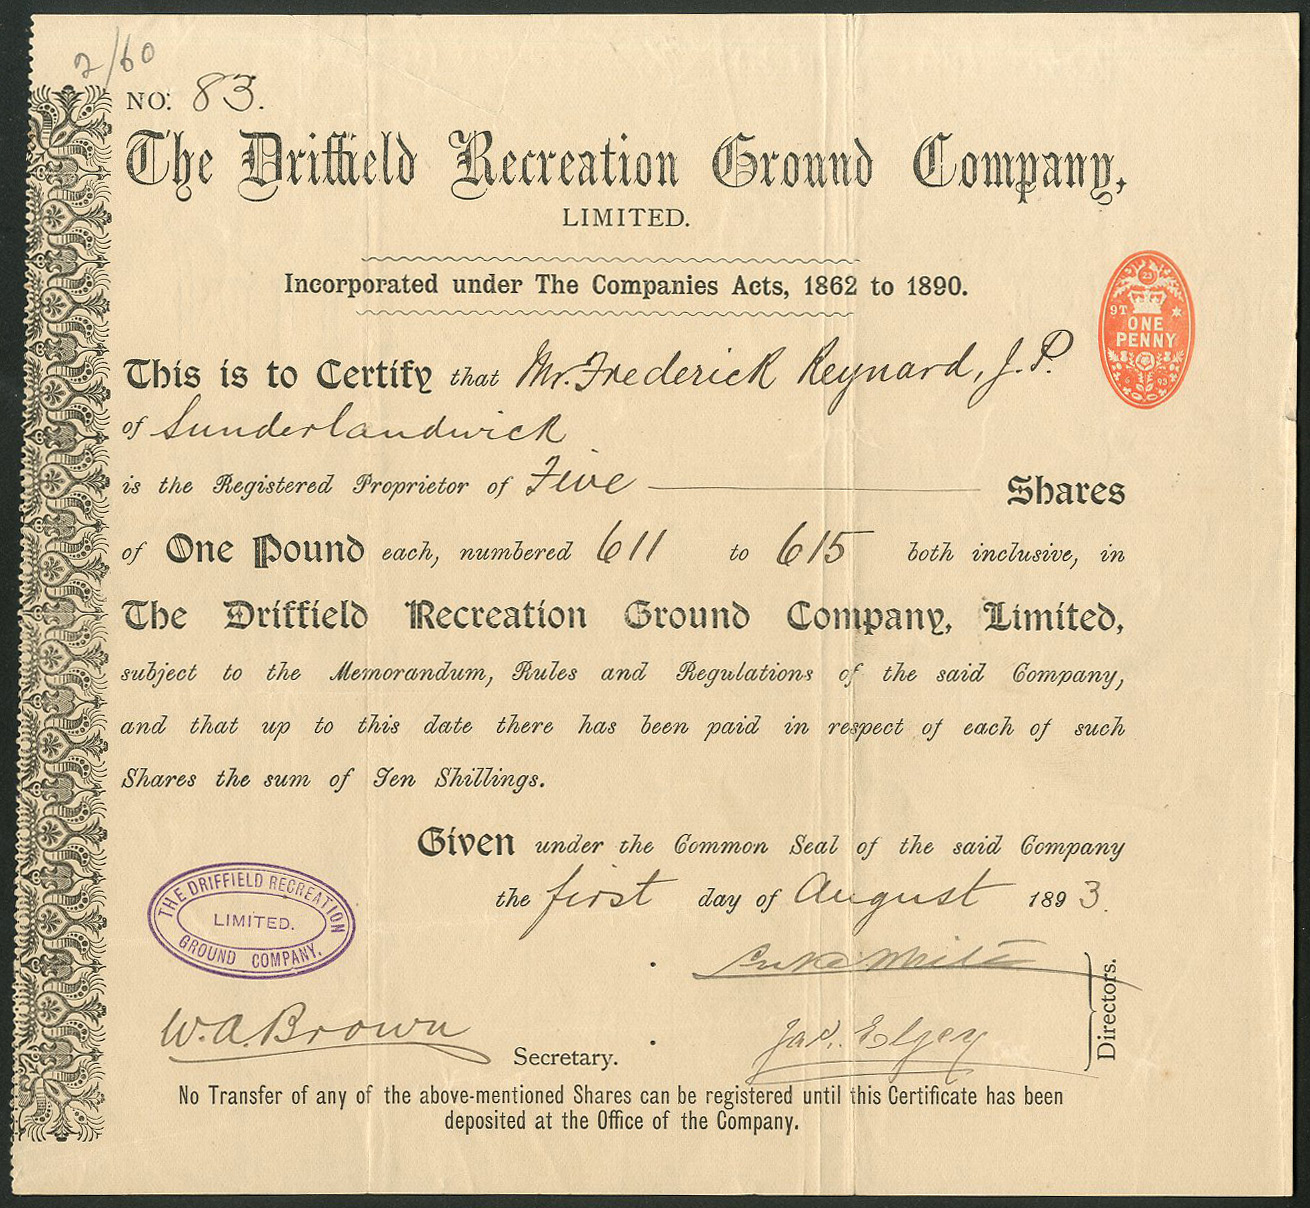 2/60
NO. 83.
The Driffield Recreation Ground Company,
LIMITED.
Incorporated under The Companies Acts, 1862 to 1890.
23
9T
ONE
PENNY
6 93
This is to Certify that Mr. Frederick Reynard, J.P.
of Sunderlandwick
is the Registered Proprietor of Five Shares
of One Pound each, numbered 611 to 615 both inclusive, in
The Driffield Recreation Ground Company, Limited,
subject to the Memorandum, Rules and Regulations of the said Company,
and that up to this date there has been paid in respect of each of such
Shares the sum of Ten Shillings.
Given under the Common Seal of the said Company
the first day of August 1893.
THE DRIFFIELD RECREATION
LIMITED.
GROUND COMPANY.
Luke White
Jas. Elgey
Directors.
W.A. Brown
Secretary.
No Transfer of any of the above-mentioned Shares can be registered until this Certificate has been
deposited at the Office of the Company.